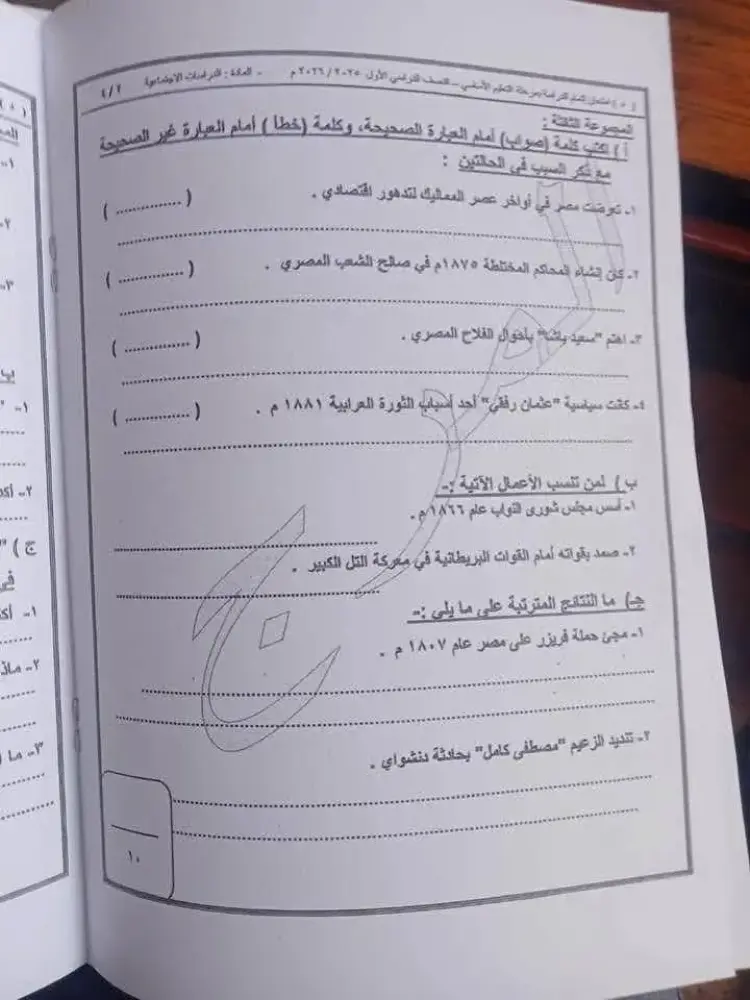 ( ٥ ) امتحان إتمام الدراسة بمرحلة التعليم الأساسي – الفصل الدراسي الأول ٢٠٢٥ / ٢٠٢٦ م - المادة : الدراسات الاجتماعية
المجموعة الثالثة :
أ ) اكتب كلمة (صواب) أمام العبارة الصحيحة، وكلمة (خطأ ) أمام العبارة غير الصحيحة
مع ذكر السبب في الحالتين :
١- تعرضت مصر في أواخر عصر المماليك لتدهور اقتصادي . ( .............. )
٢- كان إنشاء المحاكم المختلطة ١٨٧٥م في صالح الشعب المصري . ( .............. )
٣- اهتم "سعيد باشا" بأحوال الفلاح المصري . ( .............. )
٤- كانت سياسية "عثمان رفقي" أحد أسباب الثورة العرابية ١٨٨١ م . ( .............. )
ب ) لمن تنسب الأعمال الآتية :-
١- أسس مجلس شورى النواب عام ١٨٦٦ م .
٢- صمد بقواته أمام القوات البريطانية في معركة التل الكبير .
جـ) ما النتائج المترتبة على ما يلي :-
١- مجئ حملة فريزر على مصر عام ١٨٠٧ م .
٢- تنديد الزعيم "مصطفى كامل" بحادثة دنشواي .
١٠